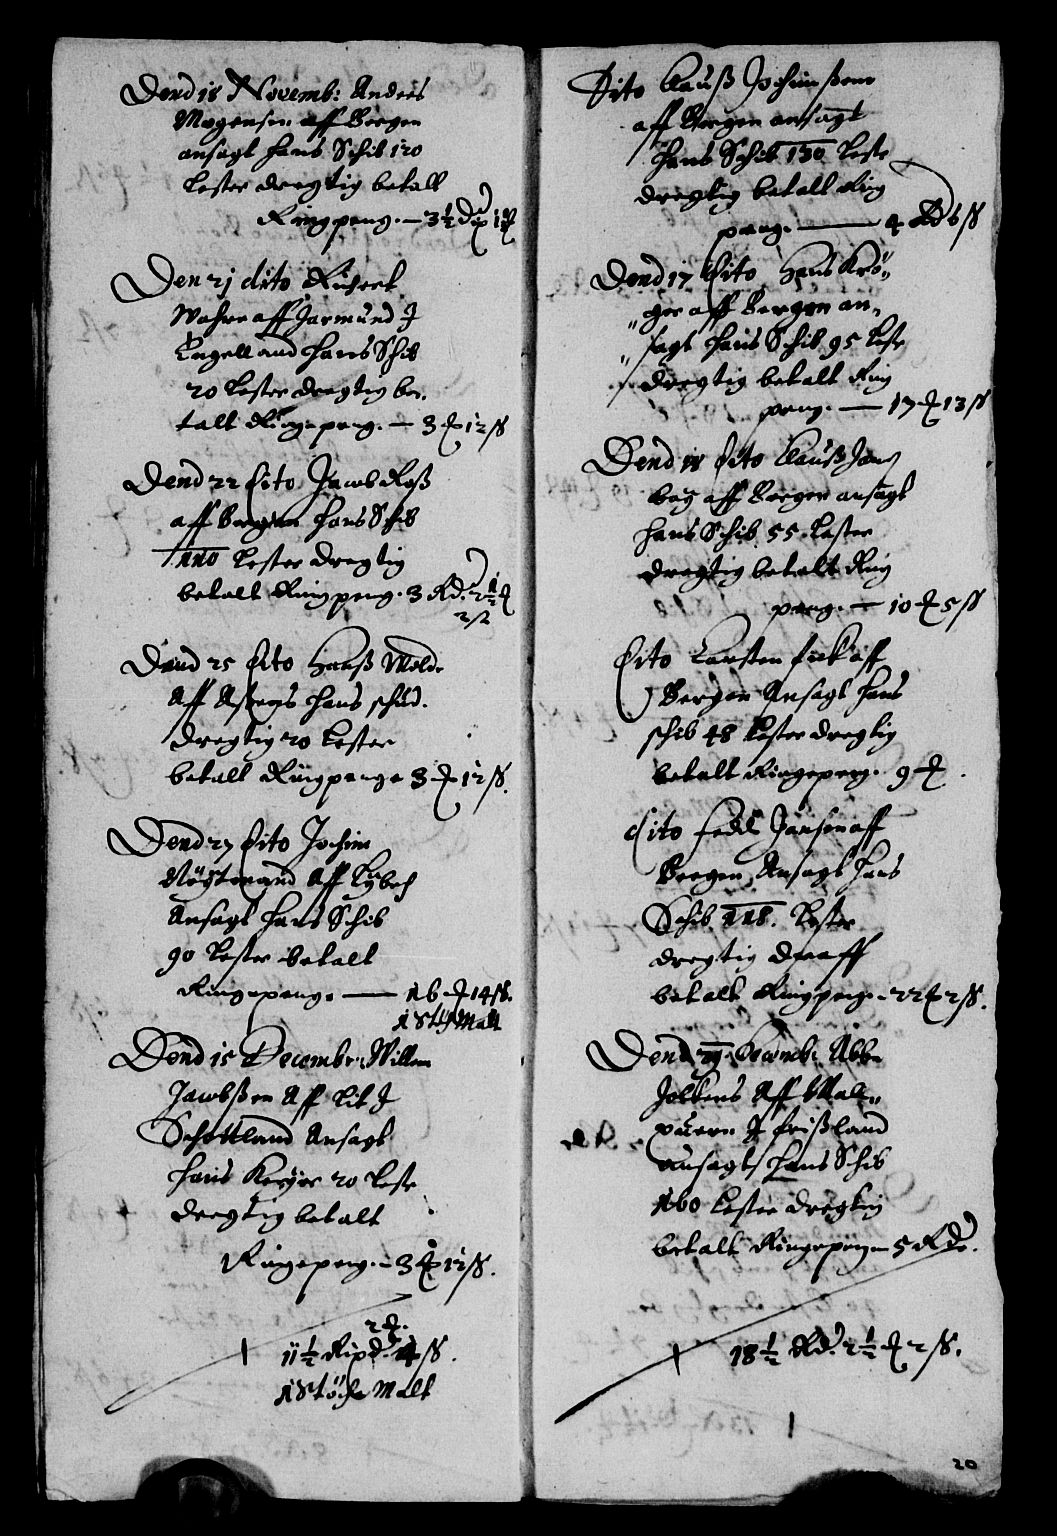 Dend 18 Novemb: Anders
Mogensen aff Bergen
ansagt hans Schib 120
Lester dregtig betalt
Ringpeng. — 3½ Rd 1 ß
Den 21 dito Richert
Wahre aff Jarmund J
Engelland hans Schib
20 Lester dregtig be,
talt Ringepeng. — 3 ₰ 12 ß
Dend 22 dito Jacob Roß
aff Bergen hans Schib
110 Lester dregtig
betalt Ringpeng. 3 Rd. 2½ ₰
2 ß
Dend 25 dito Hanß Wold.
Aff hans schud.
dregtig 20 Lester
betalt Ringpenge 3 ₰ 12 ß.
Dend 27 dito Jochim
Aff Lybech
Ansagt hans Schib
90 Lester betalt
Ringepenge. — 16 ₰ 14 ß.
1 Malt
Dend 15 Decembr: Willem
Jacobßen Aff Lit J
Schottland Ansagt
hans 20 Leste
dregtig betalt
Ringepeng. – 3 ₰ 12 ß.
2 ₰.
11½ Ripd. 4 ß.
1 Stöche Malt
Dito Clauß Jochimßenn
aff Bergen ansagt
hans Schib 130 Leste
dregtig betalt Ring
peng. — 4 Rd 6 ß
Dend 17 dito Hans Krö„
„ger aff Bergen an„
„sagt hans Schib 95 Leste
dregtig betalt Ring
peng. — 17 ₰ 13 ß
Dend 18 dito Clauß Jans
aff Bergen ansagt
hans Schib 55. Lester
dregtig betalt Ring
peng. — 10 ₰ 5 ß
Dito Carsten aff
Bergen Ansagt hans
schib 48 Lester dregtig
betalt Ringepeng. 9 ₰.
Dito Jansen aff
Bergen, Ansagt hans
Schib. 118. Lester
dregtig deraff
betalt Ringpenge. – 22 ₰ 2 ß.
Dend Decemb: Abbe
Jolkens Aff
J Frißland
ansagt hans Schib
160 Lester dregtig
betalt Ringepenge – 5 Rdr.
18½ Rd. 2½ ₰ 2 ß.
20